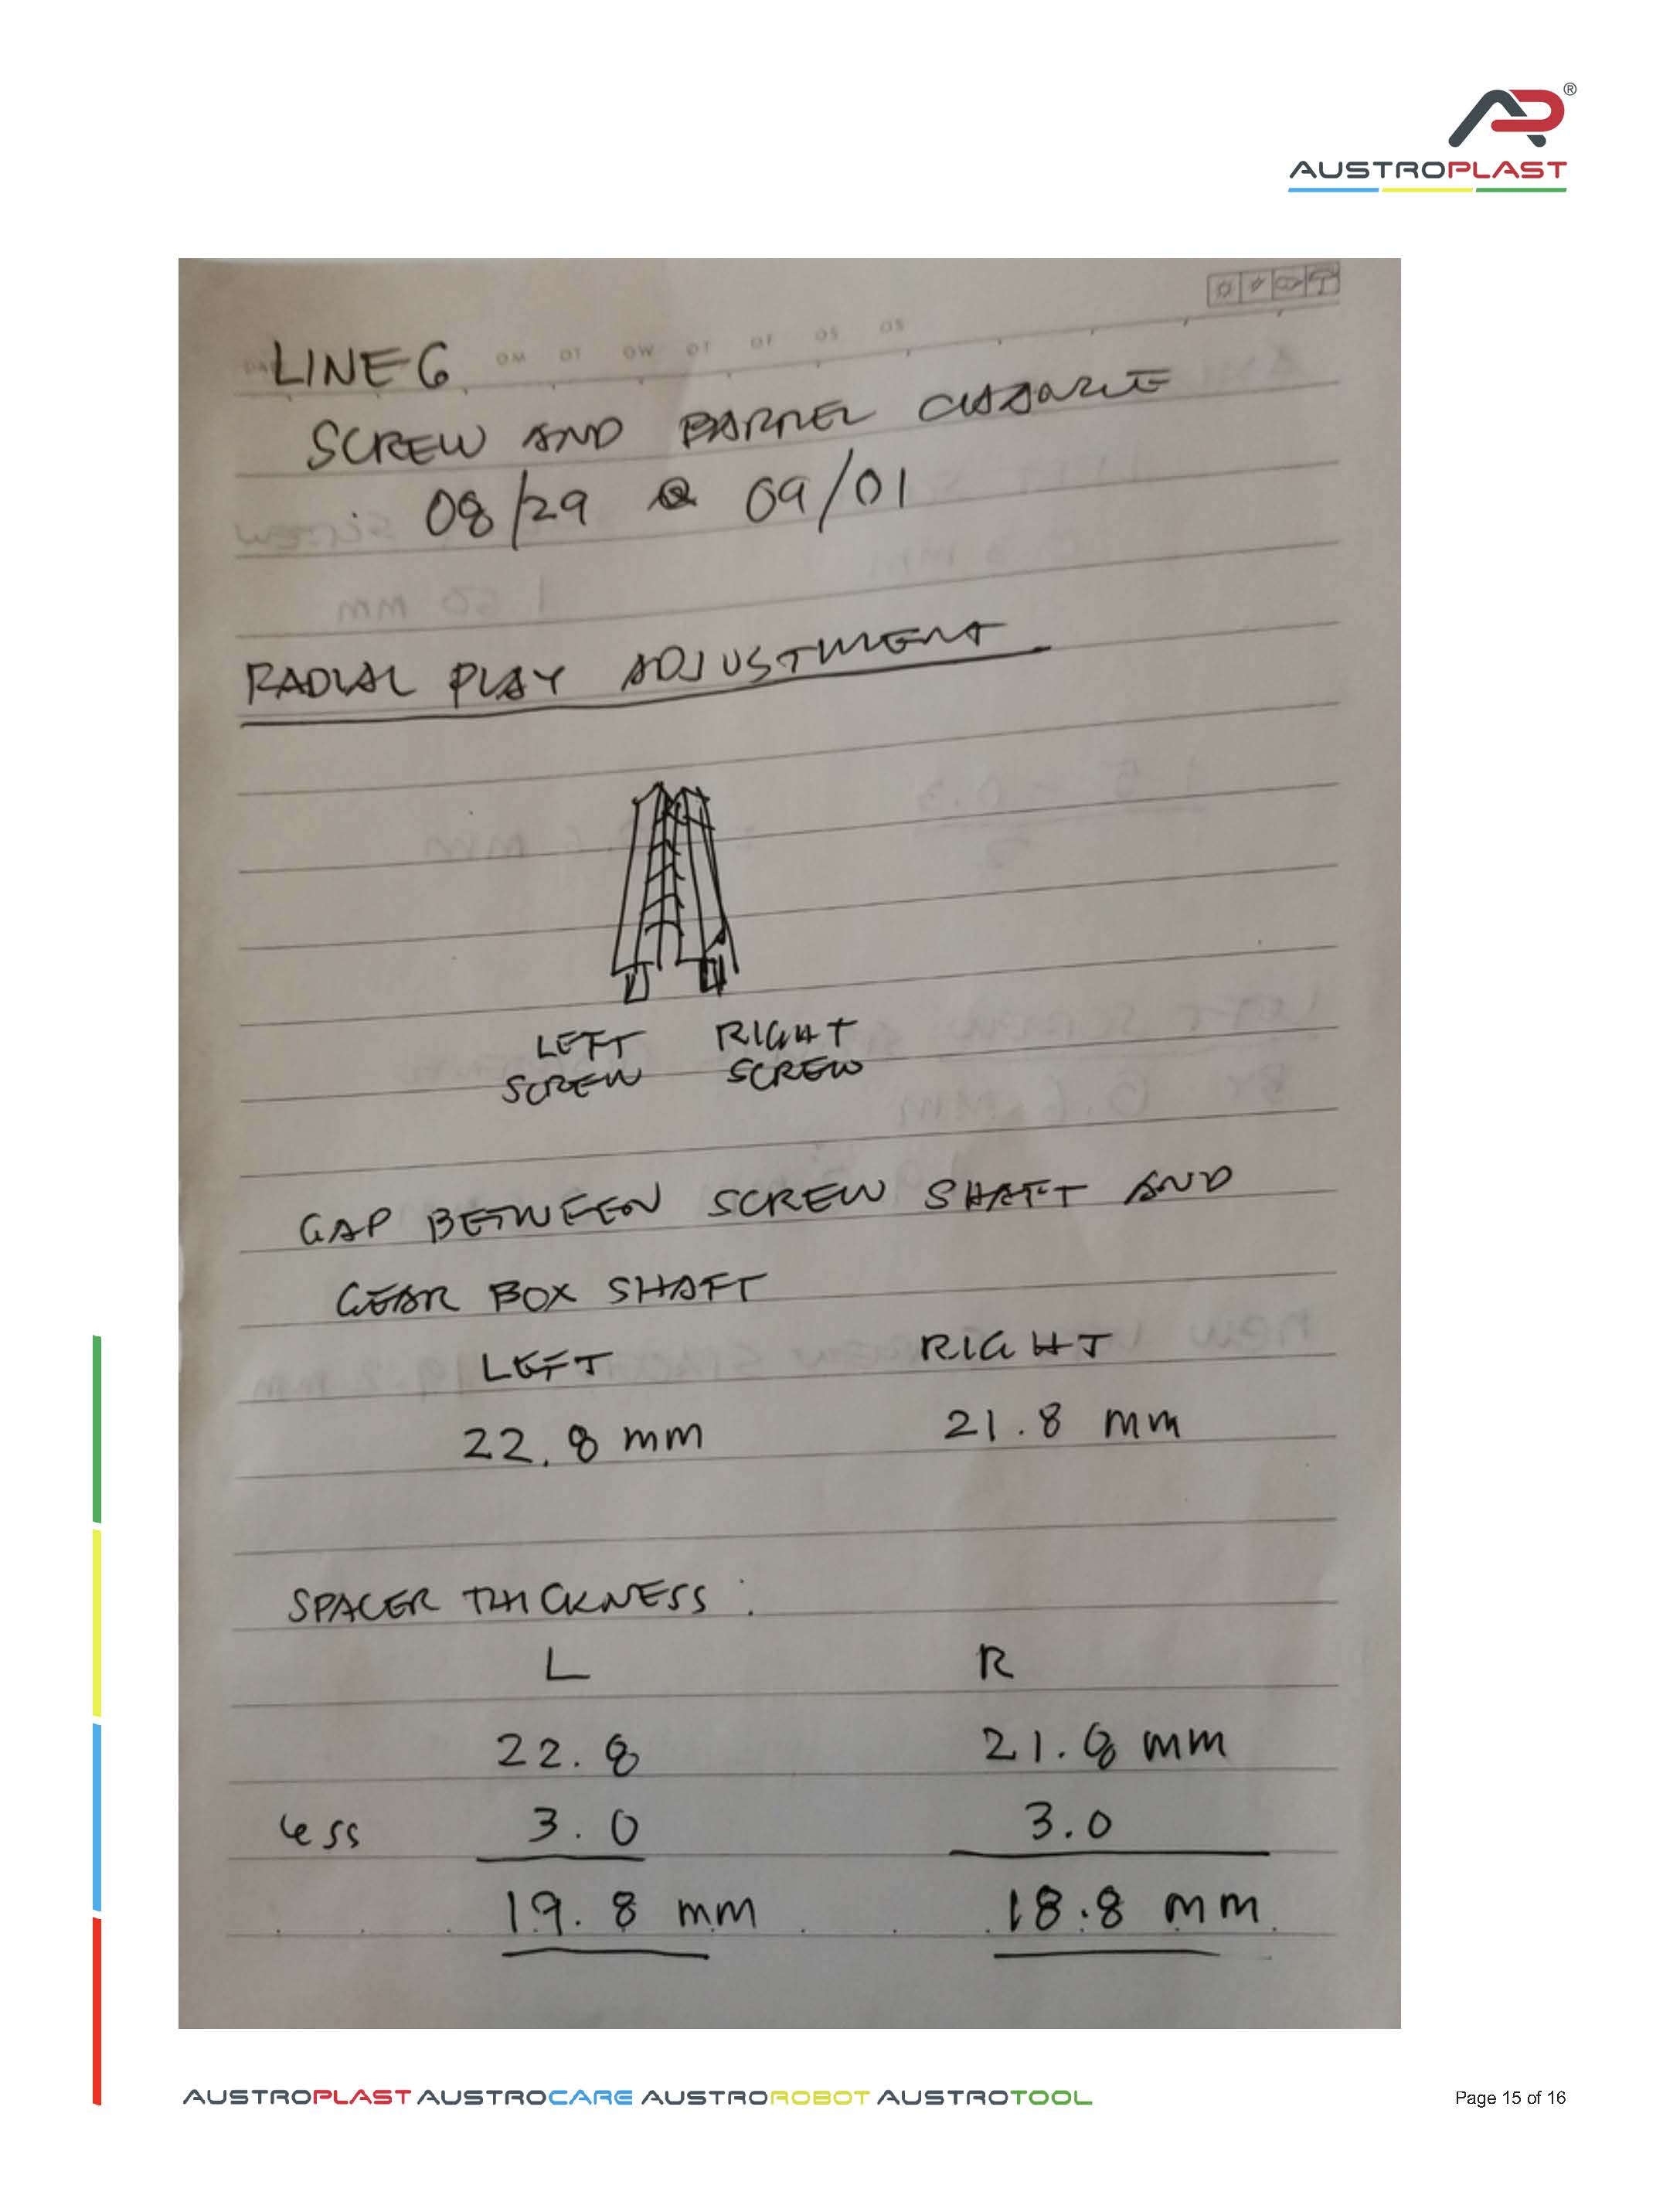 AUSTROPLAST®
LINE 6
SCREW AND BARREL CHANGE
08/29 @ 09/01
RADIAL PLAY ADJUSTMENT
LEFT RIGHT
SCREW SCREW
GAP BETWEEN SCREW SHAFT AND
GEAR BOX SHAFT
LEFT RIGHT
22.8 mm 21.8 mm
SPACER THICKNESS :
L R
22.8 21.8 mm
less 3.0 3.0
19.8 mm 18.8 mm
AUSTROPLAST AUSTROCARE AUSTROROBOT AUSTROTOOL
Page 15 of 16